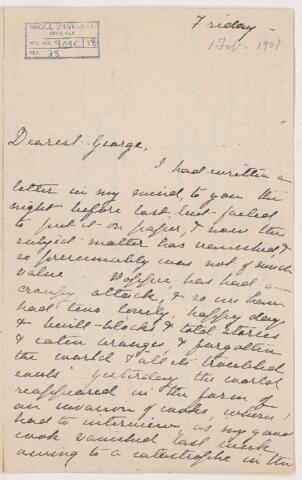 McGILL UNIVERSITY
ARCHIVES
ACC. NO. 9090/18
REF. 28
Friday -
1 Feb. 1901
Dearest George,
I had written a
letter in my mind, to you the
night before last, but failed
to put it on paper, & now the
subject matter has vanished, &
so presumably was not of much
value. has had a
croupy attack, & so we have
had two lovely, happy days
& built-blocks & told stories
& eaten oranges & forgotten
the world & "all its troubled
souls". Yesterday the world
reappeared in the form of
an invasion of cooks, whom I
had to interview, as my good
cook vanished last week
owing to a catastrophe in the